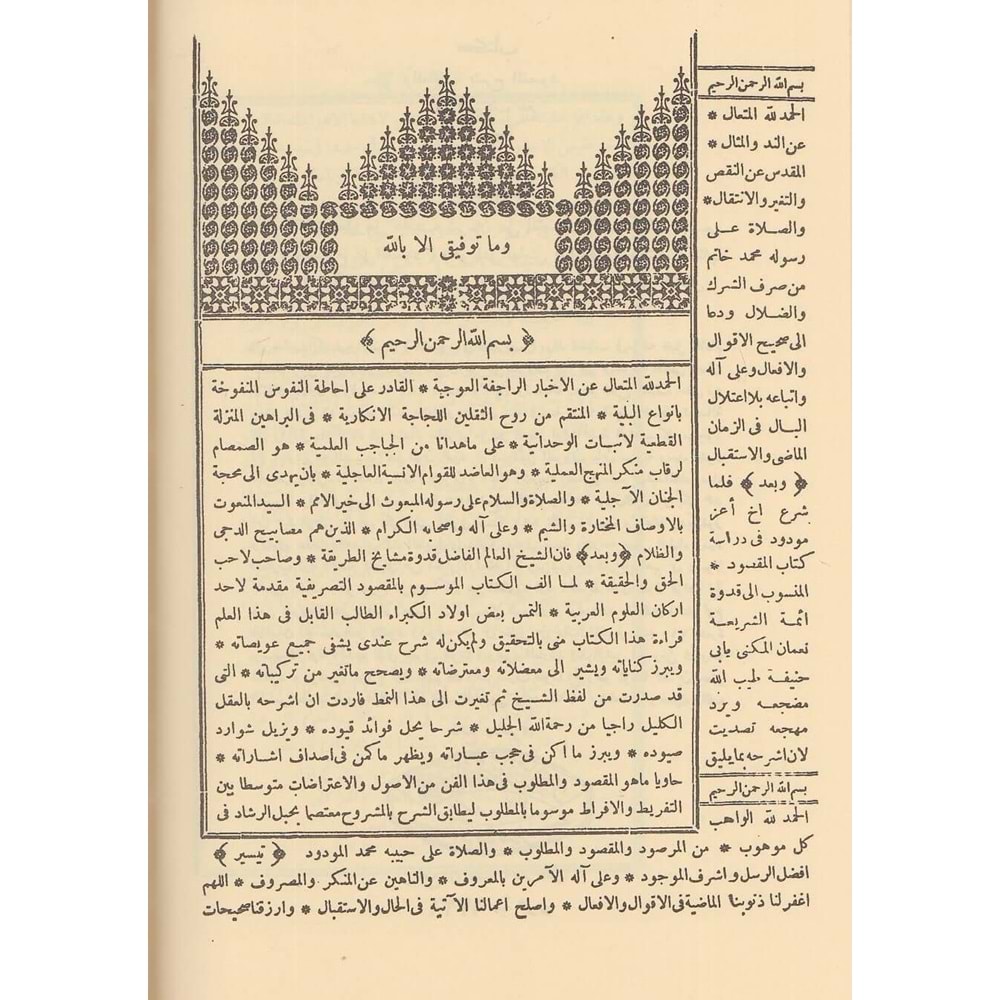 وما توفيقى الا بالله
﴿ بسم الله الرحمن الرحيم ﴾
الحمدلله المتعال عن الاخبار الراجفة العوجية * القادر على احاطة النفوس المنفوخة
بانواع البلية * المنتقم من روح الثقلين اللجاجة الانكارية * فى البراهين المنزلة
القطعية لاثبات الوحدانية * على ماهدانا من الجباجب العلمية * هو الصمصام
لرقاب منكر المنهج العملية * وهو العاضد للقوام الانسية العاجلية * بان يهدى الى محجة
الجنان الآجلية * والصلاة والسلام على رسوله المبعوث الى خير الامم * السيد المنعوت
بالاوصاف المختارة والشيم * وعلى آله واصحابه الكرام * الذين هم مصابيح الدجى
والظلام ﴿وبعد﴾ فان الشيخ العالم الفاضل قدوة مشايخ الطريقة * وصاحب لاحب
الحق والحقيقة * لما الف الكتاب الموسوم بالمقصود التصريفية مقدمة لاحد
اركان العلوم العربية * التمس بعض اولاد الكبراء الطالب القابل فى هذا العلم
قراءة هذا الكتاب منى بالتحقيق ولم يكن له شرح عندى يشفى جميع عويصاته *
ويبرز كناياته ويشير الى معضلاته ومعترضاته * ويصحح ماتغير من تركيباته * التى
قد صدرت من لفظ الشيخ ثم تغيرت الى هذا النمط فاردت ان اشرحه بالعقل
الكليل راجيا من رحمة الله الجليل * شرحا يحل فوائد قيوده * ويزيل شوارد
صيوده * ويبرز ما اكن فى حجب عباراته ويظهر ماكمن فى اصداف اشاراته *
حاويا ماهو المقصود والمطلوب فى هذا الفن من الاصول والاعتراضات متوسطا بين
التفريط والافراط موسوما بالمطلوب ليطابق الشرح بالمشروح معتصما بحبل الرشاد فى
﴿ تيسير ﴾
بسم الله الرحمن الرحيم
الحمد لله المتعال *
عن الند والمثال *
المقدس عن النقص
والتغير والانتقال *
والصلاة على
رسوله محمد خاتم
من صرف الشرك
والضلال ودعا
الى صحيح الاقوال
والافعال وعلى آله
واتباعه بلا اعتلال
البال فى الزمان
الماضى والاستقبال
﴿ وبعد ﴾ فلما
شرع اخ أعز
مودود فى دراسة
كتاب المقصود *
المنسوب الى قدوة
ائمة الشريعة
نعمان المكنى بابى
حنيفة طيب الله
مضجعه وبرد
مهجعه تصديت
لان اشرحه بما يليق
بسم الله الرحمن الرحيم
الحمد لله الواهب
كل موهوب * من المرصود والمقصود والمطلوب * والصلاة على حبيبه محمد المودود
افضل الرسل واشرف الموجود * وعلى آله الآمرين بالمعروف * والناهين عن المنكر والمصروف * اللهم
اغفر لنا ذنوبنا الماضية فى الاقوال والافعال * واصلح اعمالنا الآتية فى الحال والاستقبال * وارزقنا صحيحات